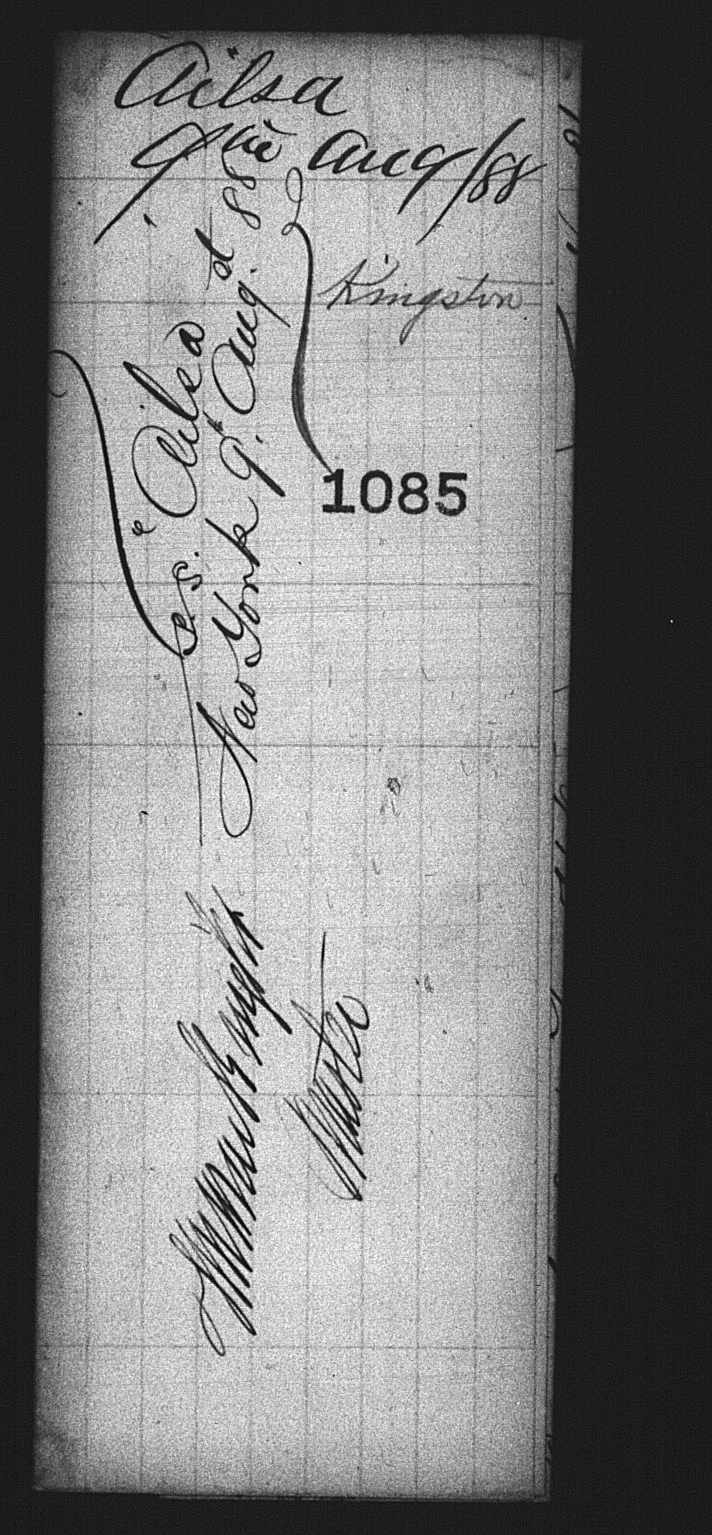 Ailsa
9th Aug/88
Kingston
1085
S.S. "Ailsa"
New York 9th Augst 88
Master